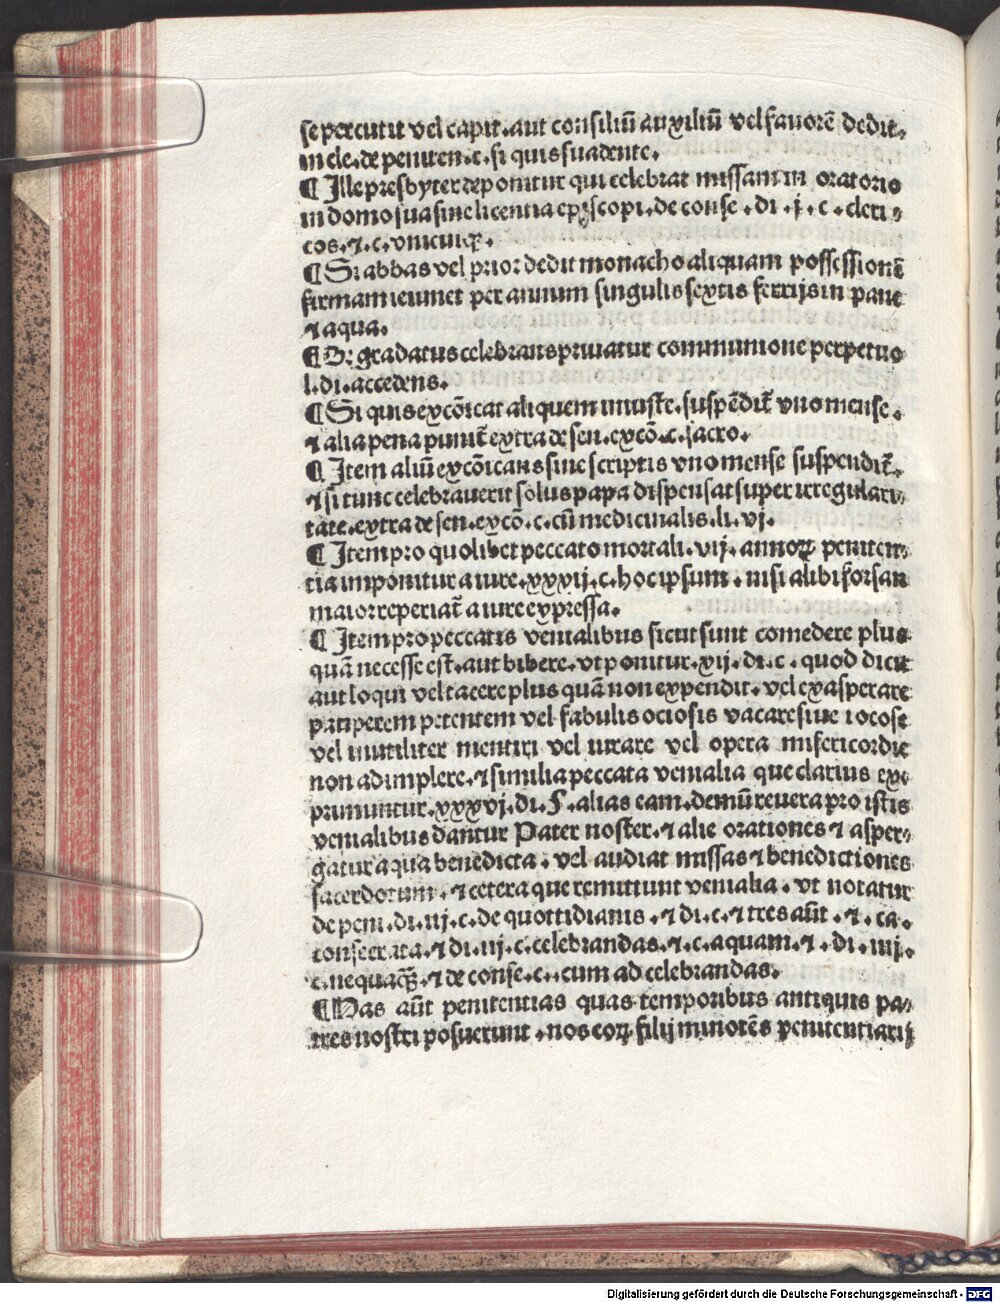 se percutit vel capit.aut consiliū auxiliū vel fauorē dedit.
in cle.de peniten.c.si quis suadente.
¶ Ille presbyter deponitur qui celebrat missam in oratorio
in domo sua sine licentia episcopi.de conse.di.j.c.cleri⸗
cos.⁊.c.vnicuiqꝫ.
¶ Si abbas vel prior dedit monacho aliquam possessionē
firmam ieiunet per annum singulis sextis ferijs in pane
⁊ aqua.
¶ Degradatus celebrans priuatur communione perpetuo
l.di.accedens.
¶ Si quis excōicat aliquem iniuste.suspēdit̄ vno mense.
⁊ alia pena punit̄ extra de sen.excō.c.sacro.
¶ Item aliū excōicans sine scriptis vno mense suspendit̄.
⁊ si tunc celebrauerit solus papa dispensat super irregulari⸗
tate.extra de sen.excō.c.cū medicinalis.li.vj.
¶ Item pro quolibet peccato mortali.vij.annoꝝ peniten⸗
tia imponitur a iure.xxxiij.c.hoc ipsum.nisi alibi forsan
maior reperiat̄ a iure expressa.
¶ Item pro peccatis venialibus sicut sunt comedere plus
quā necesse est.aut bibere.vt ponitur.xij.di.c.quod dicit
aut loqui vel tacere plus quā non expendit.vel exasperare
pauperem petentem vel fabulis ociosis vacare siue iocose
vel inutiliter mentiri vel iurare vel opera misericordie
non adimplere.⁊ similia peccata venialia que clarius ex⸗
primuntur.xxxvj.di.§.alias eam.demū reuera pro istis
venialibus dantur Pater noster.⁊ alie orationes ⁊ asper⸗
gatur aqua benedicta.vel audiat missas ⁊ benedictiones
sacerdotum.⁊ cetera que remittunt venialia.vt notatur
de peni.di.iij.c.de quottidianis.⁊ di.c.⁊ tres aūt.⁊.ca.
consecrata.⁊ di.iij.c.celebrandas.⁊.c.aquam.⁊.di.iiij.
c.nequaqꝫ.⁊ de conse.c.cum ad celebrandas.
¶ Has aūt penitentias quas temporibus antiquis pa⸗
tres nostri posuerunt.nos eoꝝ filij minores penitentiarij
Digitalisierung gefördert durch die Deutsche Forschungsgemeinschaft - DFG